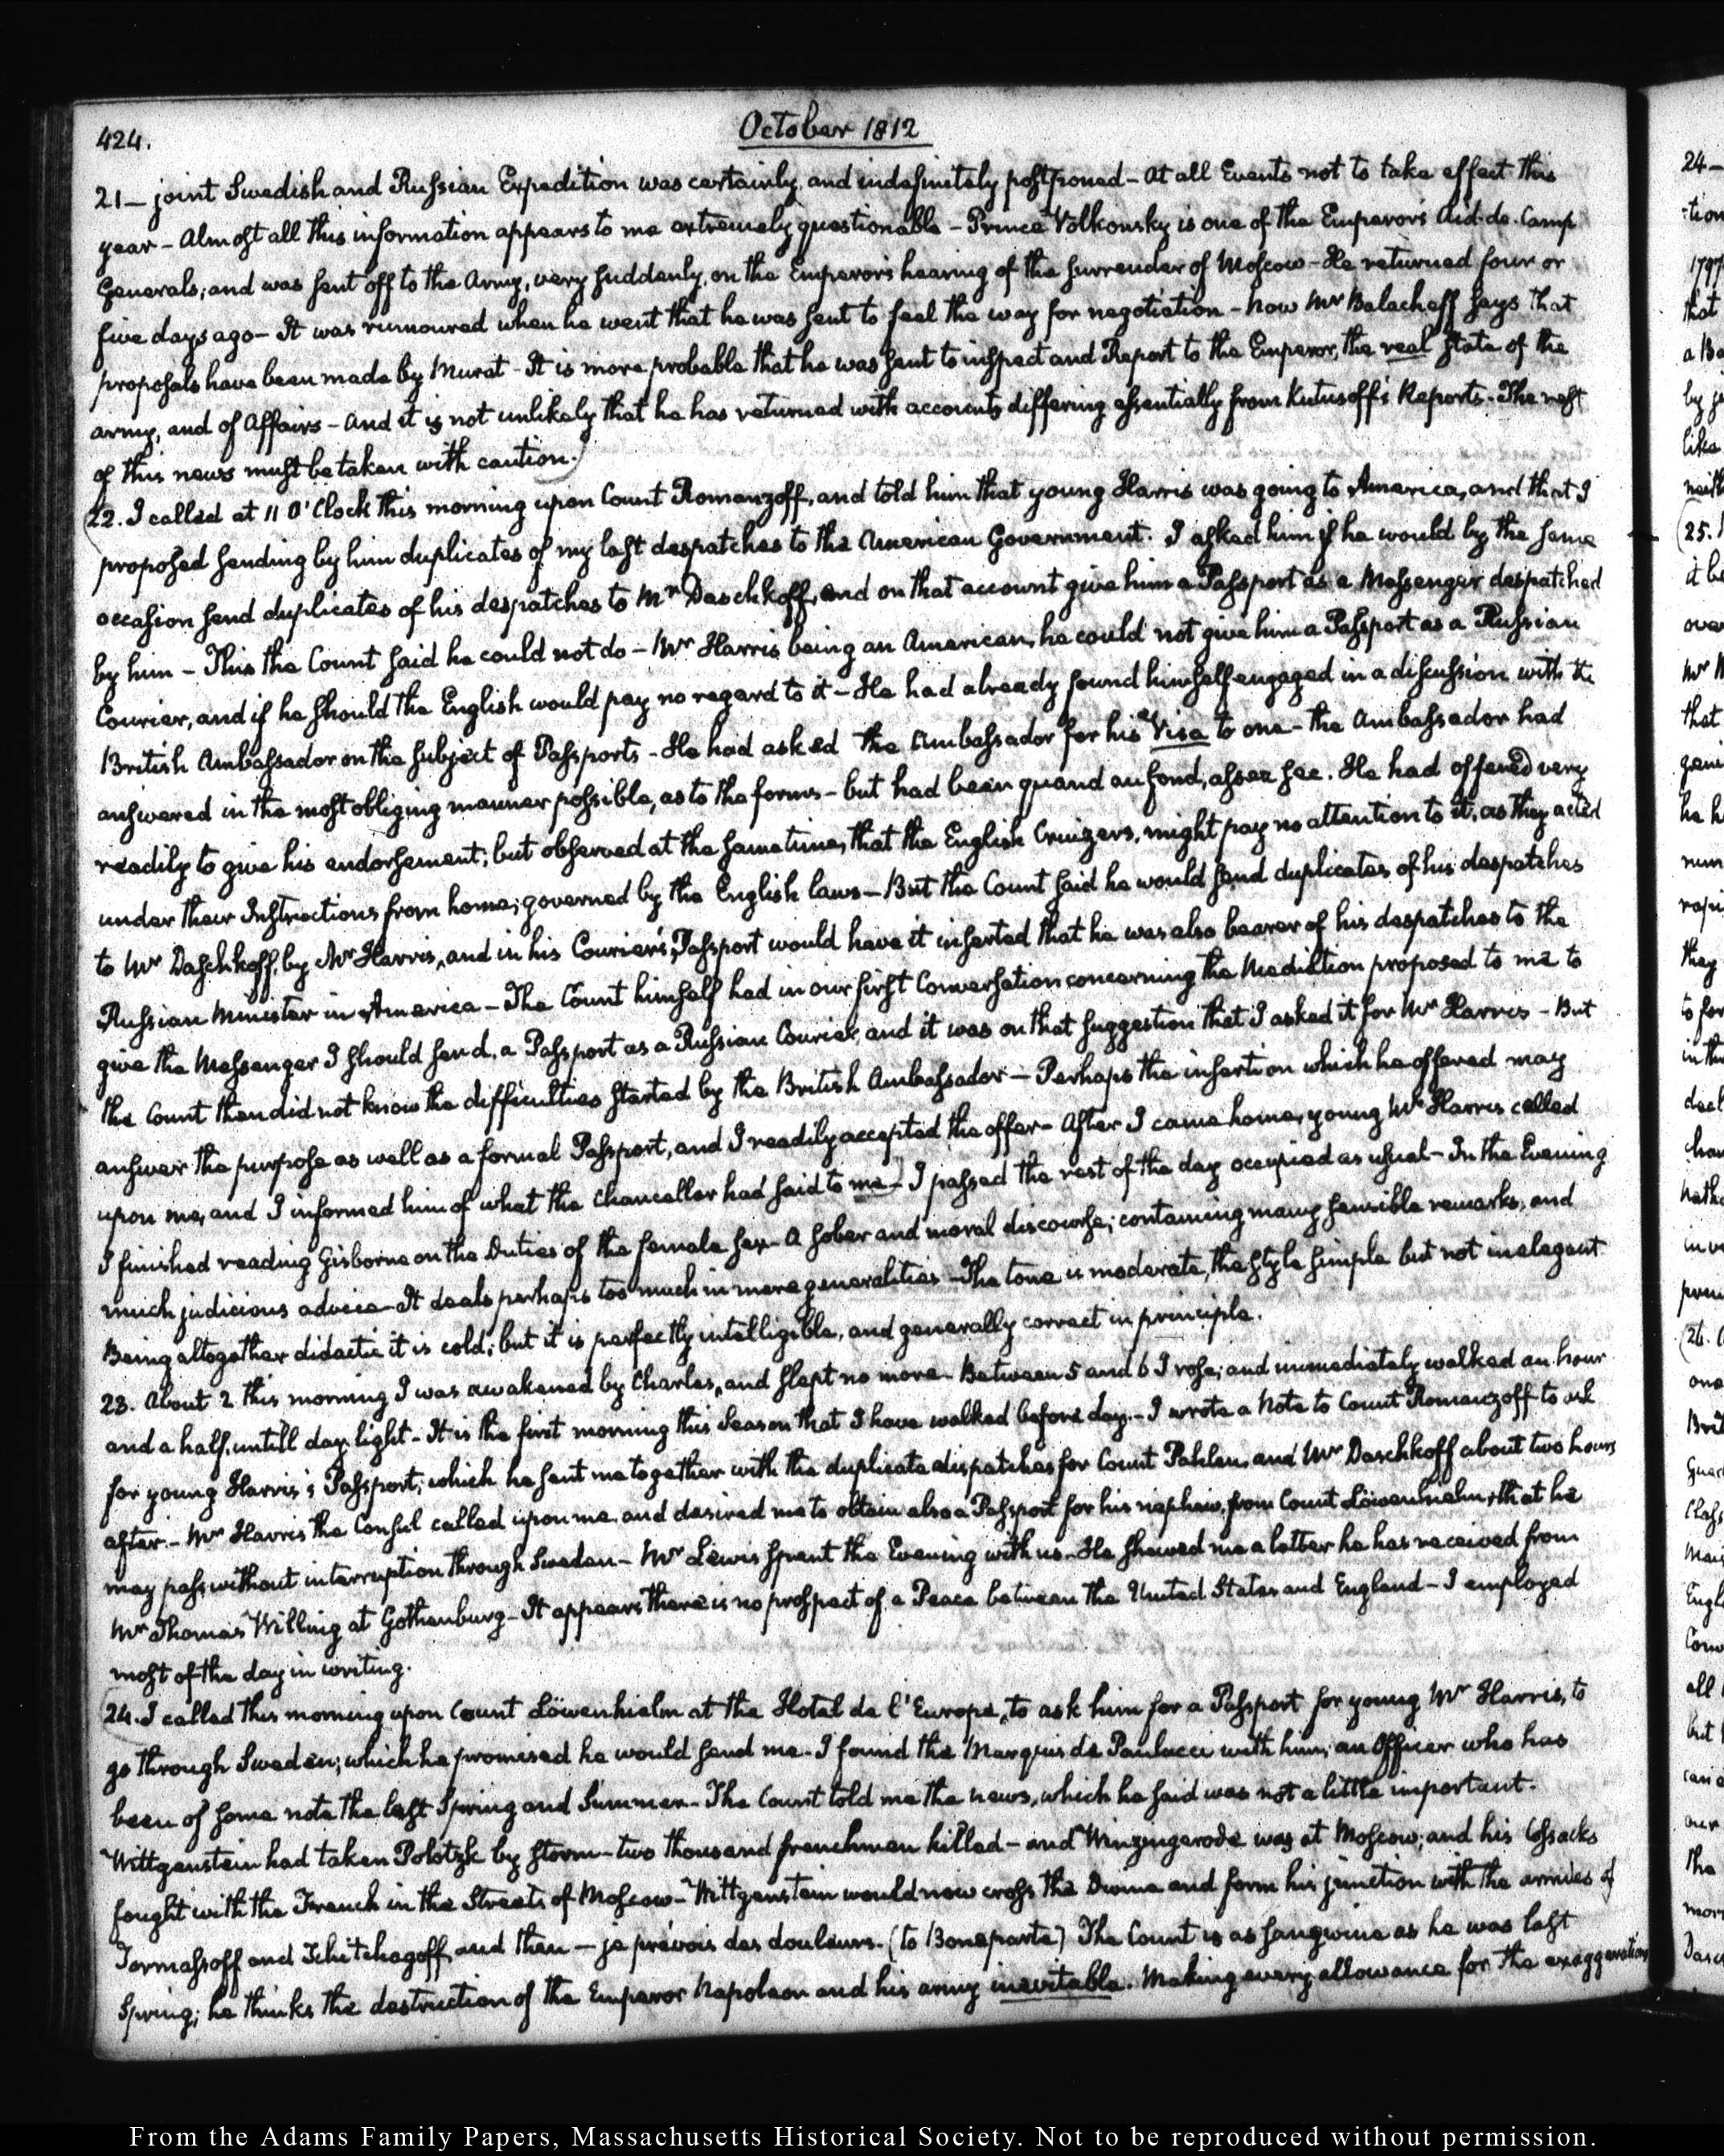 424.
October 1812
21— joint Swedish and Russian Expedition was certainly, and indefinitely postponed — At all Events not to take effect this
year — Almost all this information appears to me extremely questionable — Prince Volkonsky is one of the Emperor's Aid-de-Camp
Generals; and was sent off to the Army, very suddenly, on the Emperor's hearing of the surrender of Moscow — He returned four or
five days ago — It was rumoured when he went that he was sent to feel the way for negotiation — Now Mr Balacheff says that
proposals have been made by Murat — It is more probable that he was sent to inspect and Report to the Emperor, the real state of the
army, and of Affairs — And it is not unlikely that he has returned with accounts differing essentially from Kutusoff's Reports. The rest
of this news must be taken with caution.
22. I called at 11 O'Clock this morning upon Count Romanzoff, and told him that young Harris was going to America, and that I
proposed sending by him duplicates of my last despatches to the American Government. I asked him if he would by the same
occasion send duplicates of his despatches to Mr Daschkoff, and on that account give him a Passport as a Messenger despatched
by him — This the Count said he could not do — Mr Harris being an American, he could not give him a Passport as a Russian
Courier, and if he should the English would pay no regard to it — He had already found himself engaged in a discussion with the
British Ambassador on the subject of Passports — He had asked the Ambassador for his Visa to one — the Ambassador had
answered in the most obliging manner possible, as to the forms — but had been quand au fond, assez sec. He had offered very
readily to give his endorsement; but observed at the same time, that the English Cruizers, might pay no attention to it, as they acted
under their Instructions from home; governed by the English laws — But the Count said he would send duplicates of his despatches
to Mr Daschkoff, by Mr Harris, and in his Courier's Passport would have it inserted that he was also bearer of his despatches to the
Russian Minister in America — The Count himself had in our first Conversation concerning the Mediation proposed to me to
give the Messenger I should send, a Passport as a Russian Courier, and it was on that suggestion that I asked it for Mr Harris — But
the Count then did not know the difficulties started by the British Ambassador — Perhaps the insertion which he offered may
answer the purpose as well as a formal Passport, and I readily accepted the offer — After I came home, young Mr Harris called
upon me, and I informed him of what the Chancellor had said to me — I passed the rest of the day occupied as usual — In the Evening
I finished reading Gisborne on the Duties of the female sex — A sober and moral discourse; containing many sensible remarks, and
much judicious advice — It deals perhaps too much in mere generalities — The tone is moderate, the style simple but not inelegant
Being altogether didactic it is cold; but it is perfectly intelligible, and generally correct in principle.
23. About 2 this morning I was awakened by Charles, and slept no more — Between 5 and 6 I rose; and immediately walked an hour
and a half, untill day light — It is the first morning this Season that I have walked before day. — I wrote a Note to Count Romanzoff to ask
for young Harris's Passport; which he sent me together with the duplicate dispatches for Count Pahlen, and Mr Daschkoff about two hours
after. — Mr Harris the Consul called upon me, and desired me to obtain also a Passport for his nephew, from Count Löwenhielm, that he
may pass without interruption through Sweden — Mr Lewis spent the Evening with us — He shewed me a letter he has received from
Mr Thomas Willing at Gothenburg — It appears there is no prospect of a Peace between the United States and England — I employed
most of the day in writing.
24. I called this morning upon Count Löwenhielm at the Hotel de l'Europe, to ask him for a Passport for young Mr Harris, to
go through Sweden; which he promised he would send me. I found the Marquis de Paulucci with him; an Officer who has
been of some note the last Spring and Summer — The Count told me the news, which he said was not a little important.
Wittgenstein had taken Polotzk by storm — two thousand frenchmen killed — and Winzingerode was at Moscow; and his Cossacks
fought with the French in the Streets of Moscow — Wittgenstein would now cross the Dwina and form his junction with the armies of
Tormassoff and Tchitchagoff, and then — je prévois des douleurs. (to Bonaparte) The Count is as sanguine as he was last
Spring; he thinks the destruction of the Emperor Napoleon and his army inevitable. Making every allowance for the exaggeration
24—
1797
that
by
like
25.
over
that
he h
they
to for
in the
26.
one
all
but
our
The
From the Adams Family Papers, Massachusetts Historical Society. Not to be reproduced without permission.